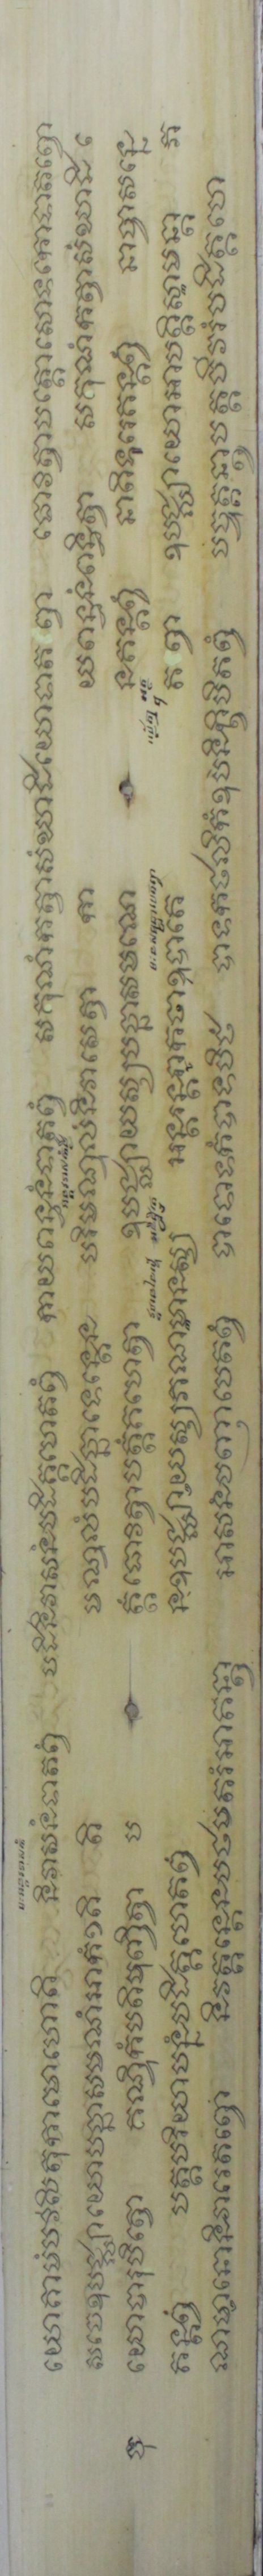 យោគាមំបវិសិតុកាមោហោតិ និវាសនំទាតព្វំ បដិនិវាសនំបដិគ្គហេតព្វំ កាយពន្ធនំទាតព្វំ សគុណំកត្វាសំឃាដិយោទាតព្វា ធោវិត្វាបត្តោសោទកោទាតព្វោ
សចេឧបជ្ឈាយោបច្ឆាសមណំអាកំខតិ តិមណ្ឌលំបដិច្ឆាទេន្តេន បរិមណ្ឌលំនិវាសេត្វា កាយពន្ធនំពន្ធិត្វា សគុណំកត្វាសំឃាដិ
យោបារុបិត្វោ គណ្ឋិកំបតិមុញ្ចិត្វា បត្តំធោវិត្វាបត្តំគហេត្វា ឧបជ្ឈាយស្សបច្ឆាសមណេន គន្តព្វំ នាតិទូរេគន្តព្វំ នាច្ចាសន្នេ
គន្តព្វំ បត្តបរិយាបន្នំបដិគ្គហេតព្វំ នឧបជ្ឈាយស្សភណមានស្ស អន្តរន្តរាកថាឱបាតេតព្វា ឧបជ្ឈាយោអាបត្តិសាមន្តា ភ
ណមានោនិវារេតព្វោ និវត្តន្តេនបឋមតរំអាគន្ត្វា អាសនំបញ្ញាបេតព្វំ បាទោទកំបាទបិឋំ បាទកថលិកំឧបនិក្ខិបិតព្វំ បច្ចុគ្គន្ត្វាបត្តចីវរំបដិគ្គហេ